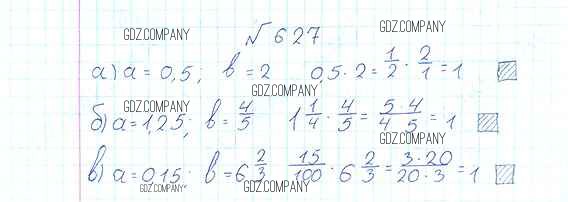 GDZ.COMPANY
№ 627
GDZ.COMPANY
а) a = 0,5; b = 2 0,5 · 2 = 1/2 · 2/1 = 1
GDZ.COMPANY
GDZ.COMPANY
б) a = 1,25; b = 4/5 1 1/4 · 4/5 = 5 · 4/4 5 = 1
GDZ.COMPANY
в) a = 0,15 b = 6 2/3 15/100 · 6 2/3 = 3 · 20/20 · 3 = 1
GDZ.COMPANY
GDZ.COMPANY